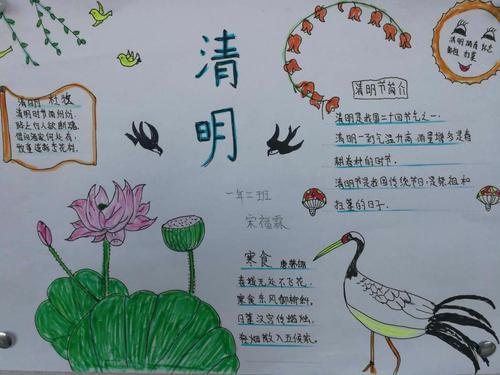 清明
一年二班
宋福霖
清明 杜牧
清明时节雨纷纷,
路上行人欲断魂.
借问酒家何处有,
牧童遥指杏花村.
清明节简介
清明是我国二十四节气之一.
清明一到气温升高,雨量增多是春
耕春种的时节.
清明节是我国传统节日,是祭祖和
扫墓的日子.
寒食 唐韩翃
春城无处不飞花,
寒食东风御柳斜.
日暮汉宫传蜡烛,
轻烟散入五侯家.